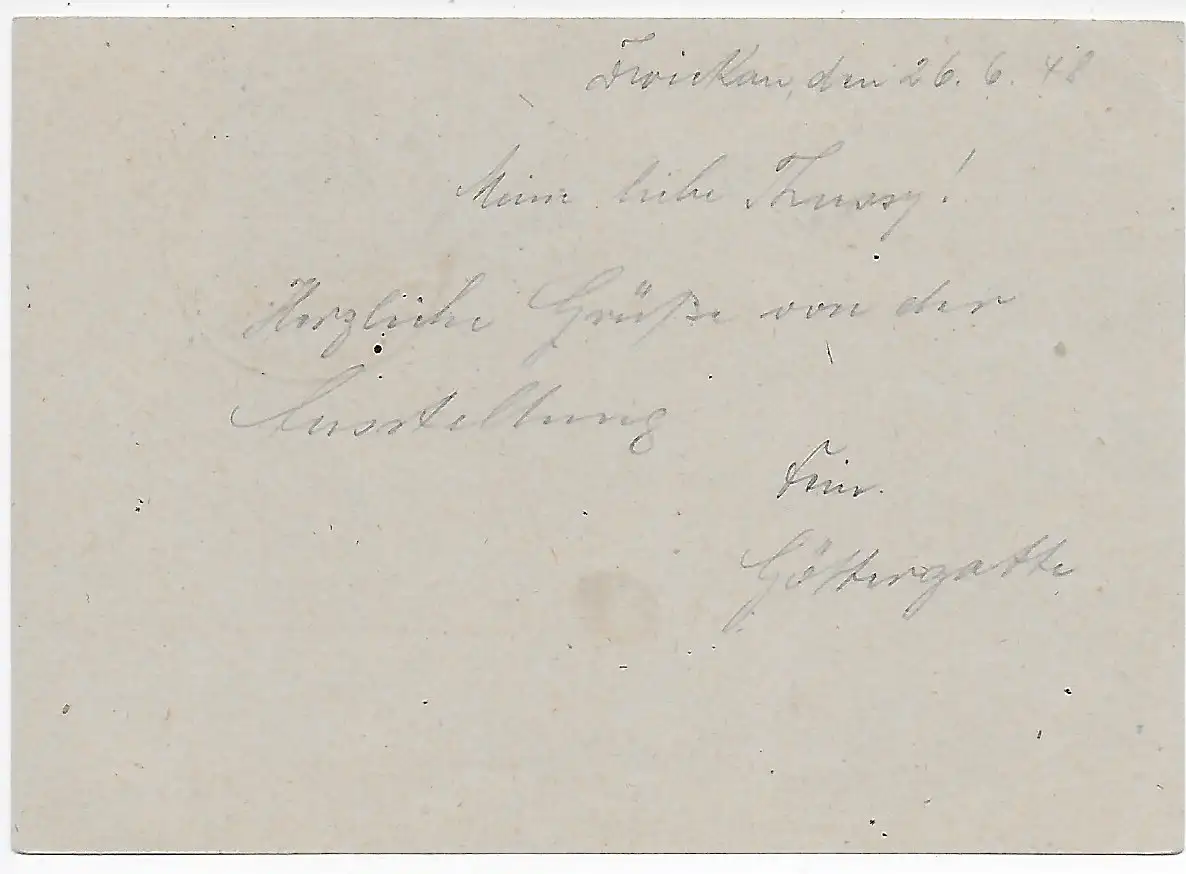 Zwickau, den 26. 6. 48
Meine liebe Thussy!
Herzliche Grüße von der
Ausstellung
Dein
Göttergatte